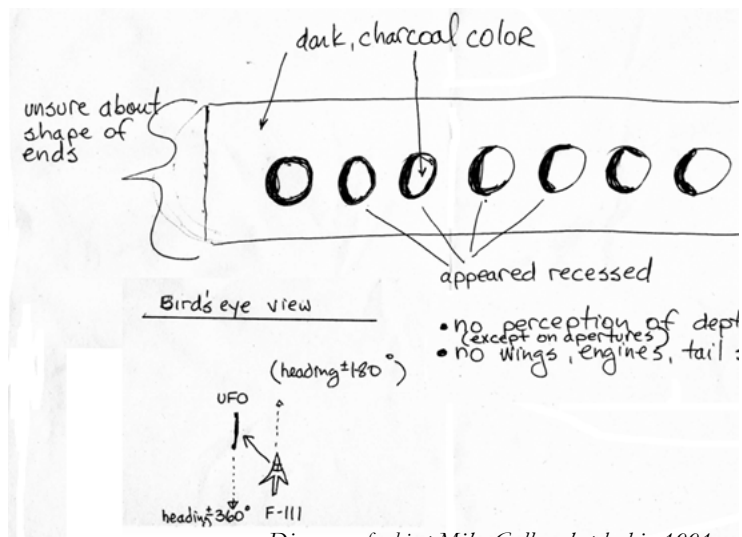 dark, charcoal color
unsure about
shape of
ends
appeared recessed
• no perception of dept
(except on apertures)
• no wings, engines, tail s
Bird's eye view
(heading ±180°)
UFO
heading ±360°
F-111